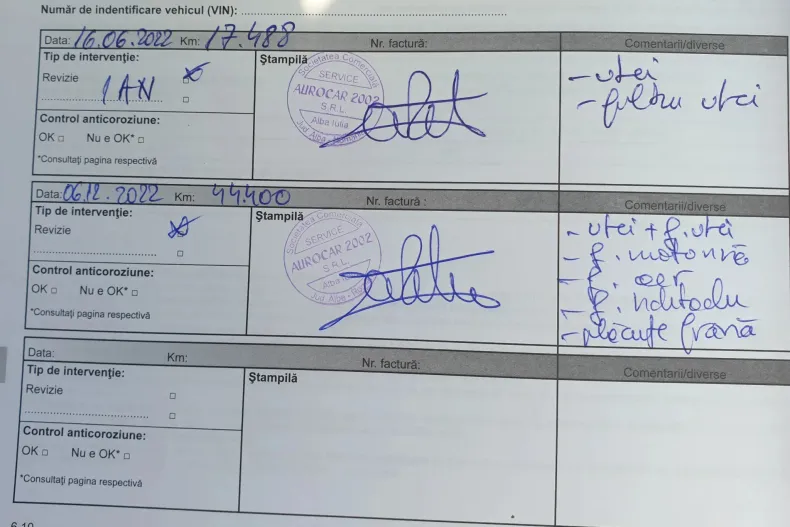 Număr de indentificare vehicul (VIN):
Data: 16.06.2022 Km: 17.488 Nr. factură: Comentarii/diverse
Tip de intervenție:
Revizie
1 AN
Control anticoroziune:
OK □ Nu e OK* □
*Consultați pagina respectivă
Ştampilă
Societatea Comercială
SERVICE
AUROCAR 2002
S.R.L.
Alba Iulia
Jud. Alba - România
- ulei
- filtru ulei
Data: 06.12.2022 Km: 44.400 Nr. factură : Comentarii/diverse
Tip de intervenție:
Revizie
Control anticoroziune:
OK □ Nu e OK* □
*Consultați pagina respectivă
Ştampilă
Societatea Comercială
SERVICE
AUROCAR 2002
S.R.L.
Alba Iulia
Jud. Alba
- ulei + f. ulei
- f. motorină
- f. aer
- f.
- plăcuțe frână
Data: Km: Nr. factură: Comentarii/diverse
Tip de intervenție:
Revizie □
□
Control anticoroziune:
OK □ Nu e OK* □
*Consultați pagina respectivă
Ştampilă
6.10